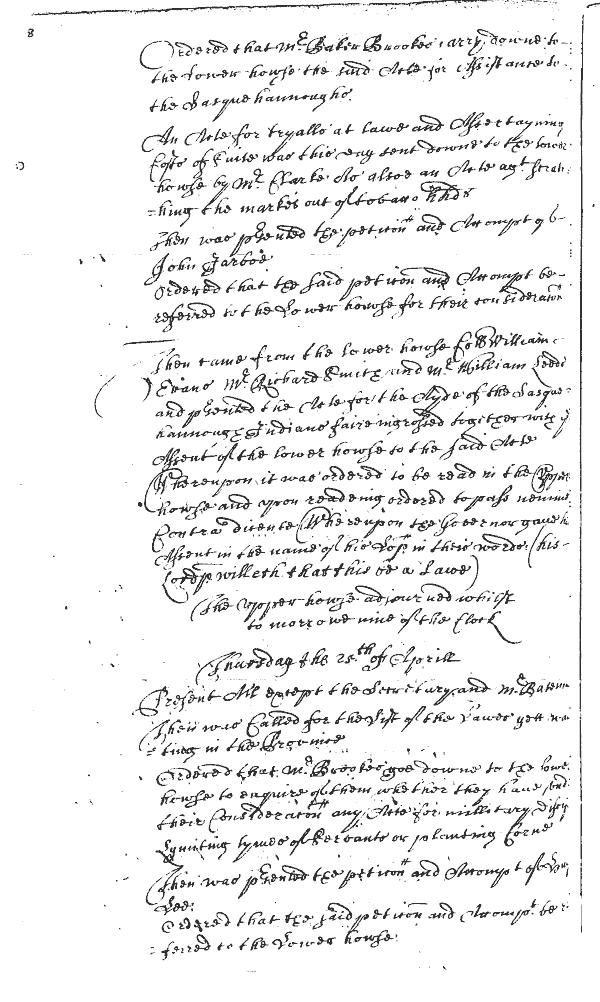 8
Ordered that Mr Baker Brooke carry downe to
the lower howse the said Acte for Assistance to
the Sasquehannoughs.
An Acte for tryalls at lawe and Assertayning
Costs of Suite was this day sent downe to the lower
howse by Mr Clarke So alsoe an Acte agt strik
=king the markes out of tobacco hhds
Then was prsented the peticon and Accompt of
John Jarboe
Ordered that the said peticon and Accompt be
referred to the Lower howse for their consideracon
Then came from the lower howse Coll William
Evans Mr Richard Smith and Mr William
and prsented the Acte for the Ayde of the Sasque
hannough Indians faire ingrossed togither with ye
Assent of the lower howse to the said Acte
Whereupon it was ordered to be read in the Upper
howse and upon reading ordered to pass nemine
Contra dicente Whereupon the Governor gave h
Assent in the name of his Losp in these words (his
Lordsp willeth that this be a Lawe)
The Upper howse adjourned whilst
to morrowe nine of the Clock
Thursday the 25th of Aprill
Present All except the Secretary and Mr Batem
Then was Called for the List of the Lawes yett wa
=ting in the Province
Ordered that Mr Brooke goe downe to the lowe
howse to enquire of them whether they have und
their Consideracon any Acte for millitary disci
tymes of Servants or planting Corne
Then was prsented the peticon and Accompt of
Lee:
Ordered that the said peticon and Accompt be re
=ferred to the Lower howse